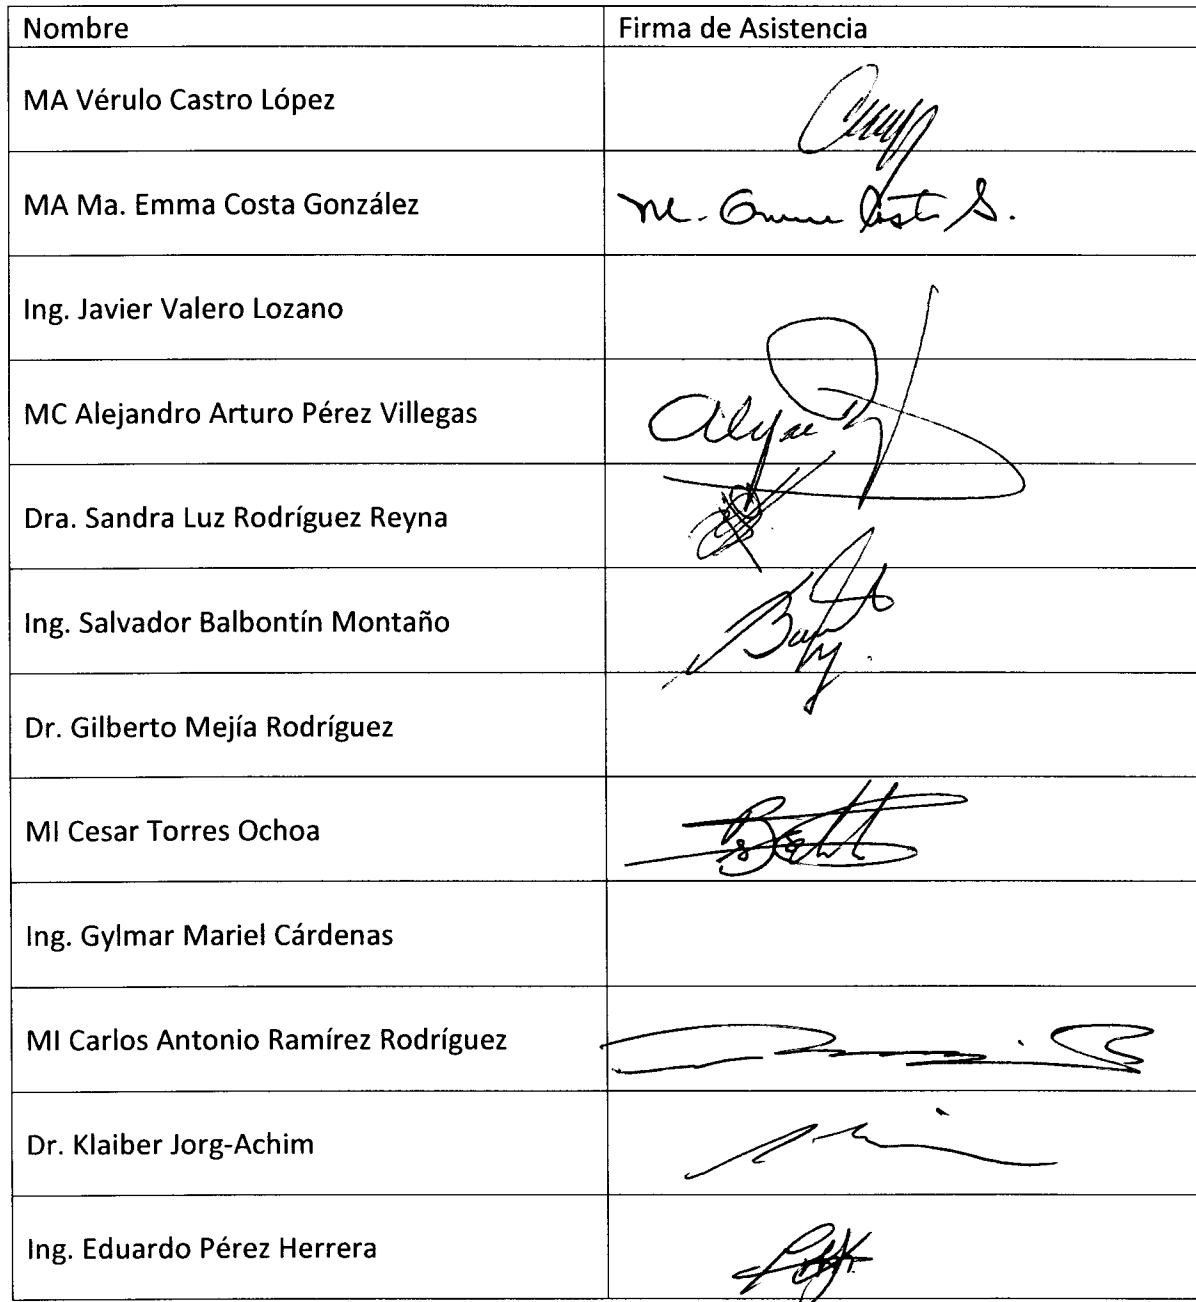 Nombre Firma de Asistencia
MA Vérulo Castro López
MA Ma. Emma Costa González
Ing. Javier Valero Lozano
MC Alejandro Arturo Pérez Villegas
Dra. Sandra Luz Rodríguez Reyna
Ing. Salvador Balbontín Montaño
Dr. Gilberto Mejía Rodríguez
MI Cesar Torres Ochoa
Ing. Gylmar Mariel Cárdenas
MI Carlos Antonio Ramírez Rodríguez
Dr. Klaiber Jorg-Achim
Ing. Eduardo Pérez Herrera